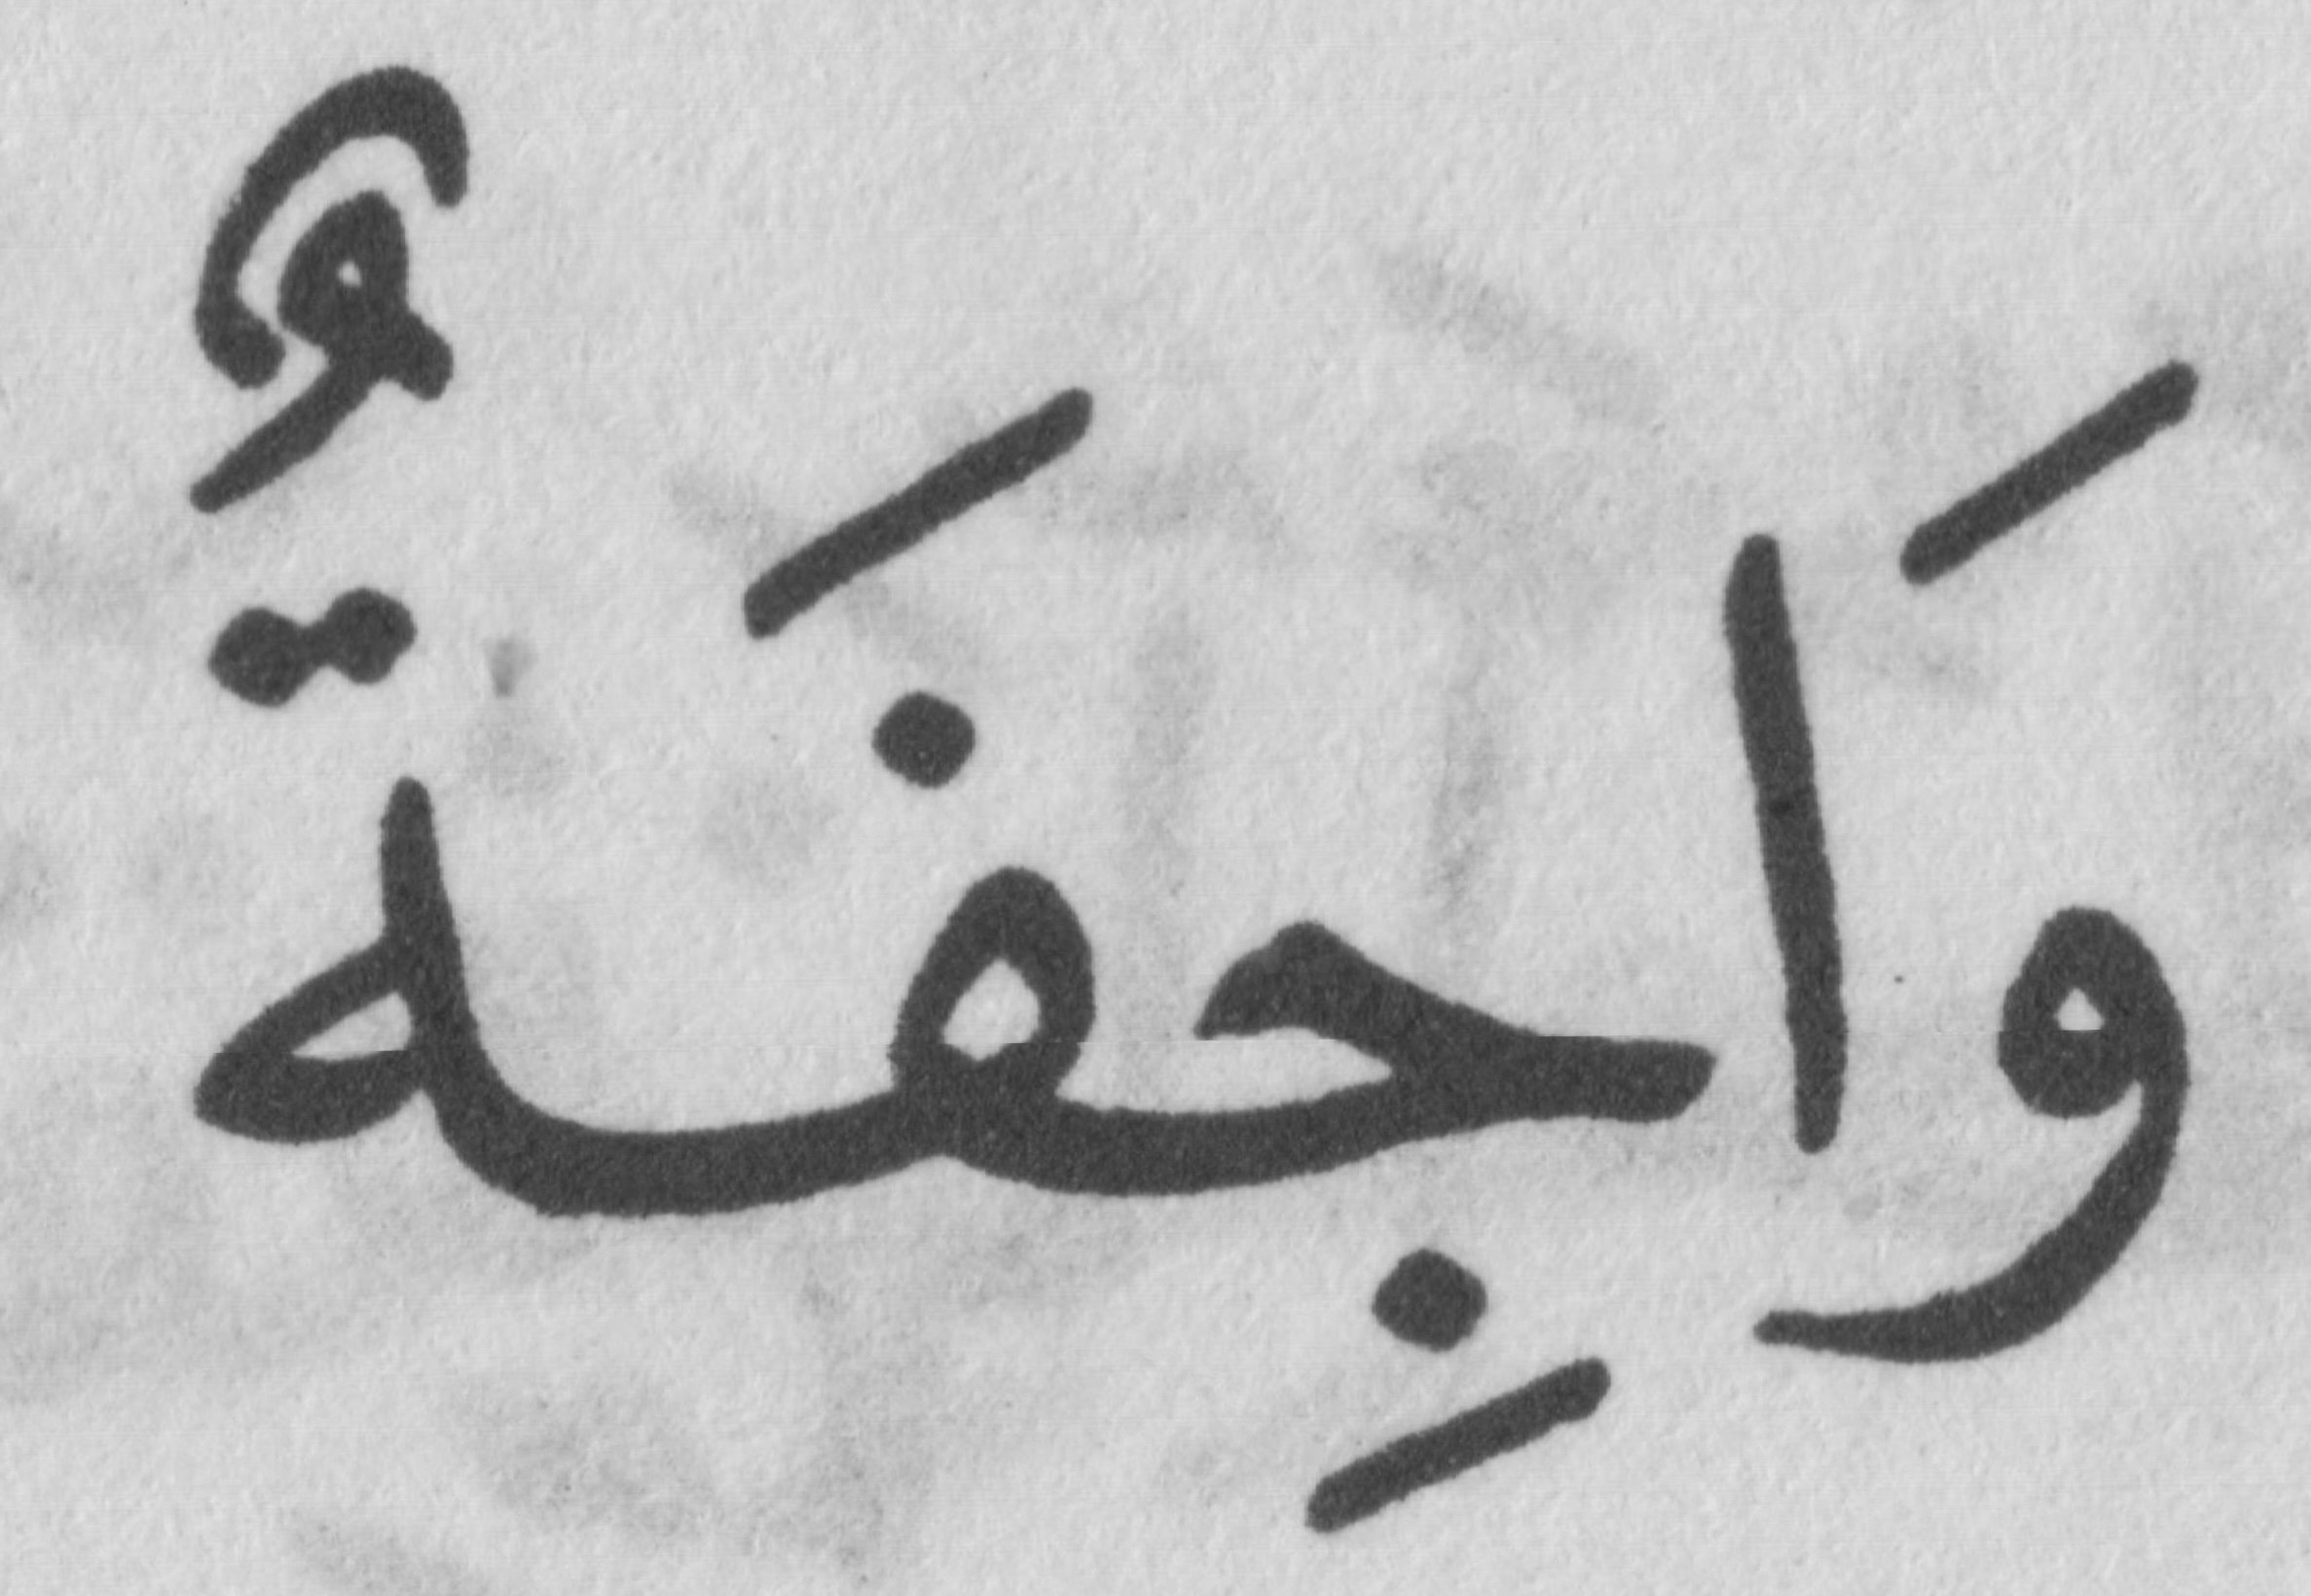 وَاجِفَةٌ